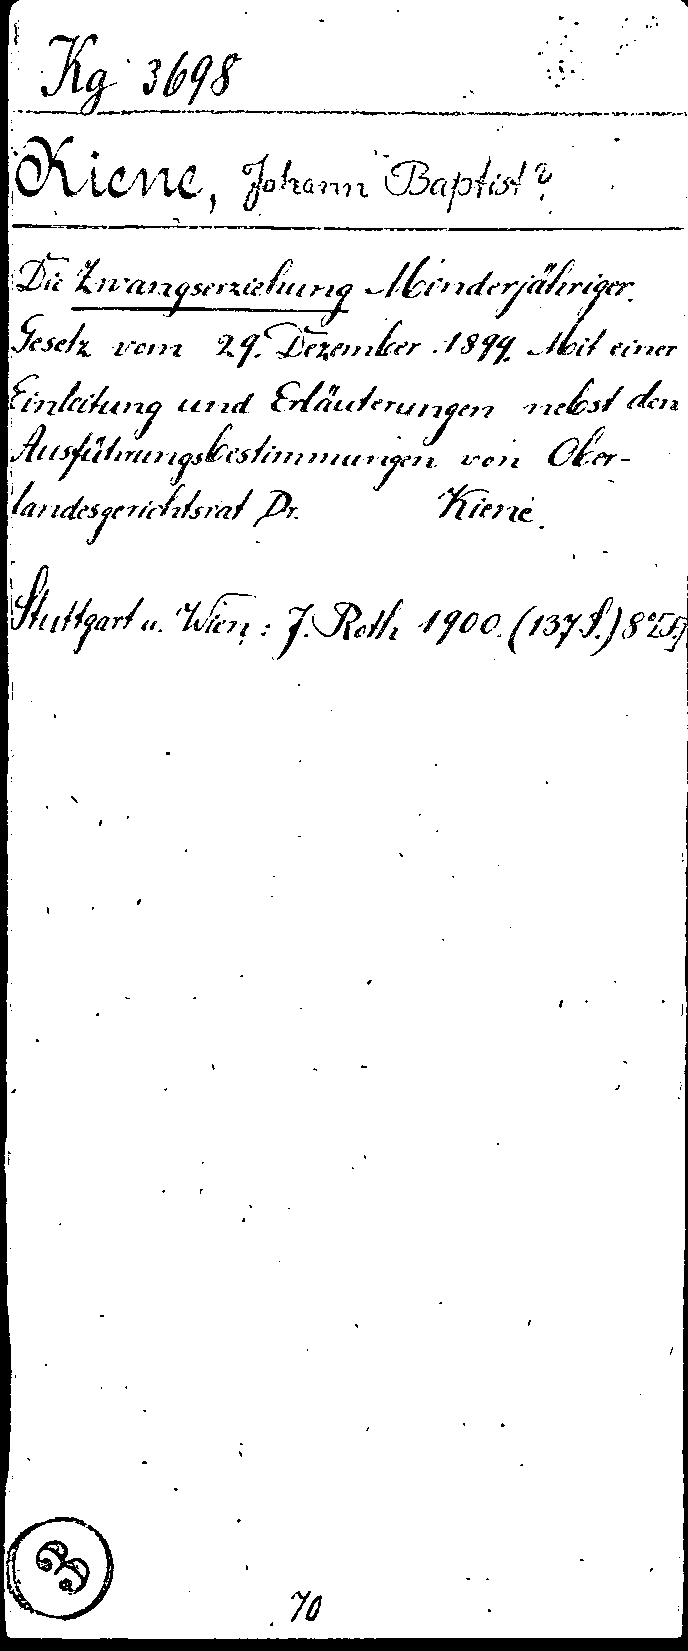 Kg 3698
Kiene, Johann Baptist?
Die Zwangserziehung Minderjähriger.
Gesetz vom 29. Dezember 1899. Mit einer
Einleitung und Erläuterungen nebst den
Ausführungsbestimmungen von Ober-
landesgerichtsrat Dr. Kiene.
Stuttgart u. Wien: J. Roth 1900. (137 S.) 8°
70